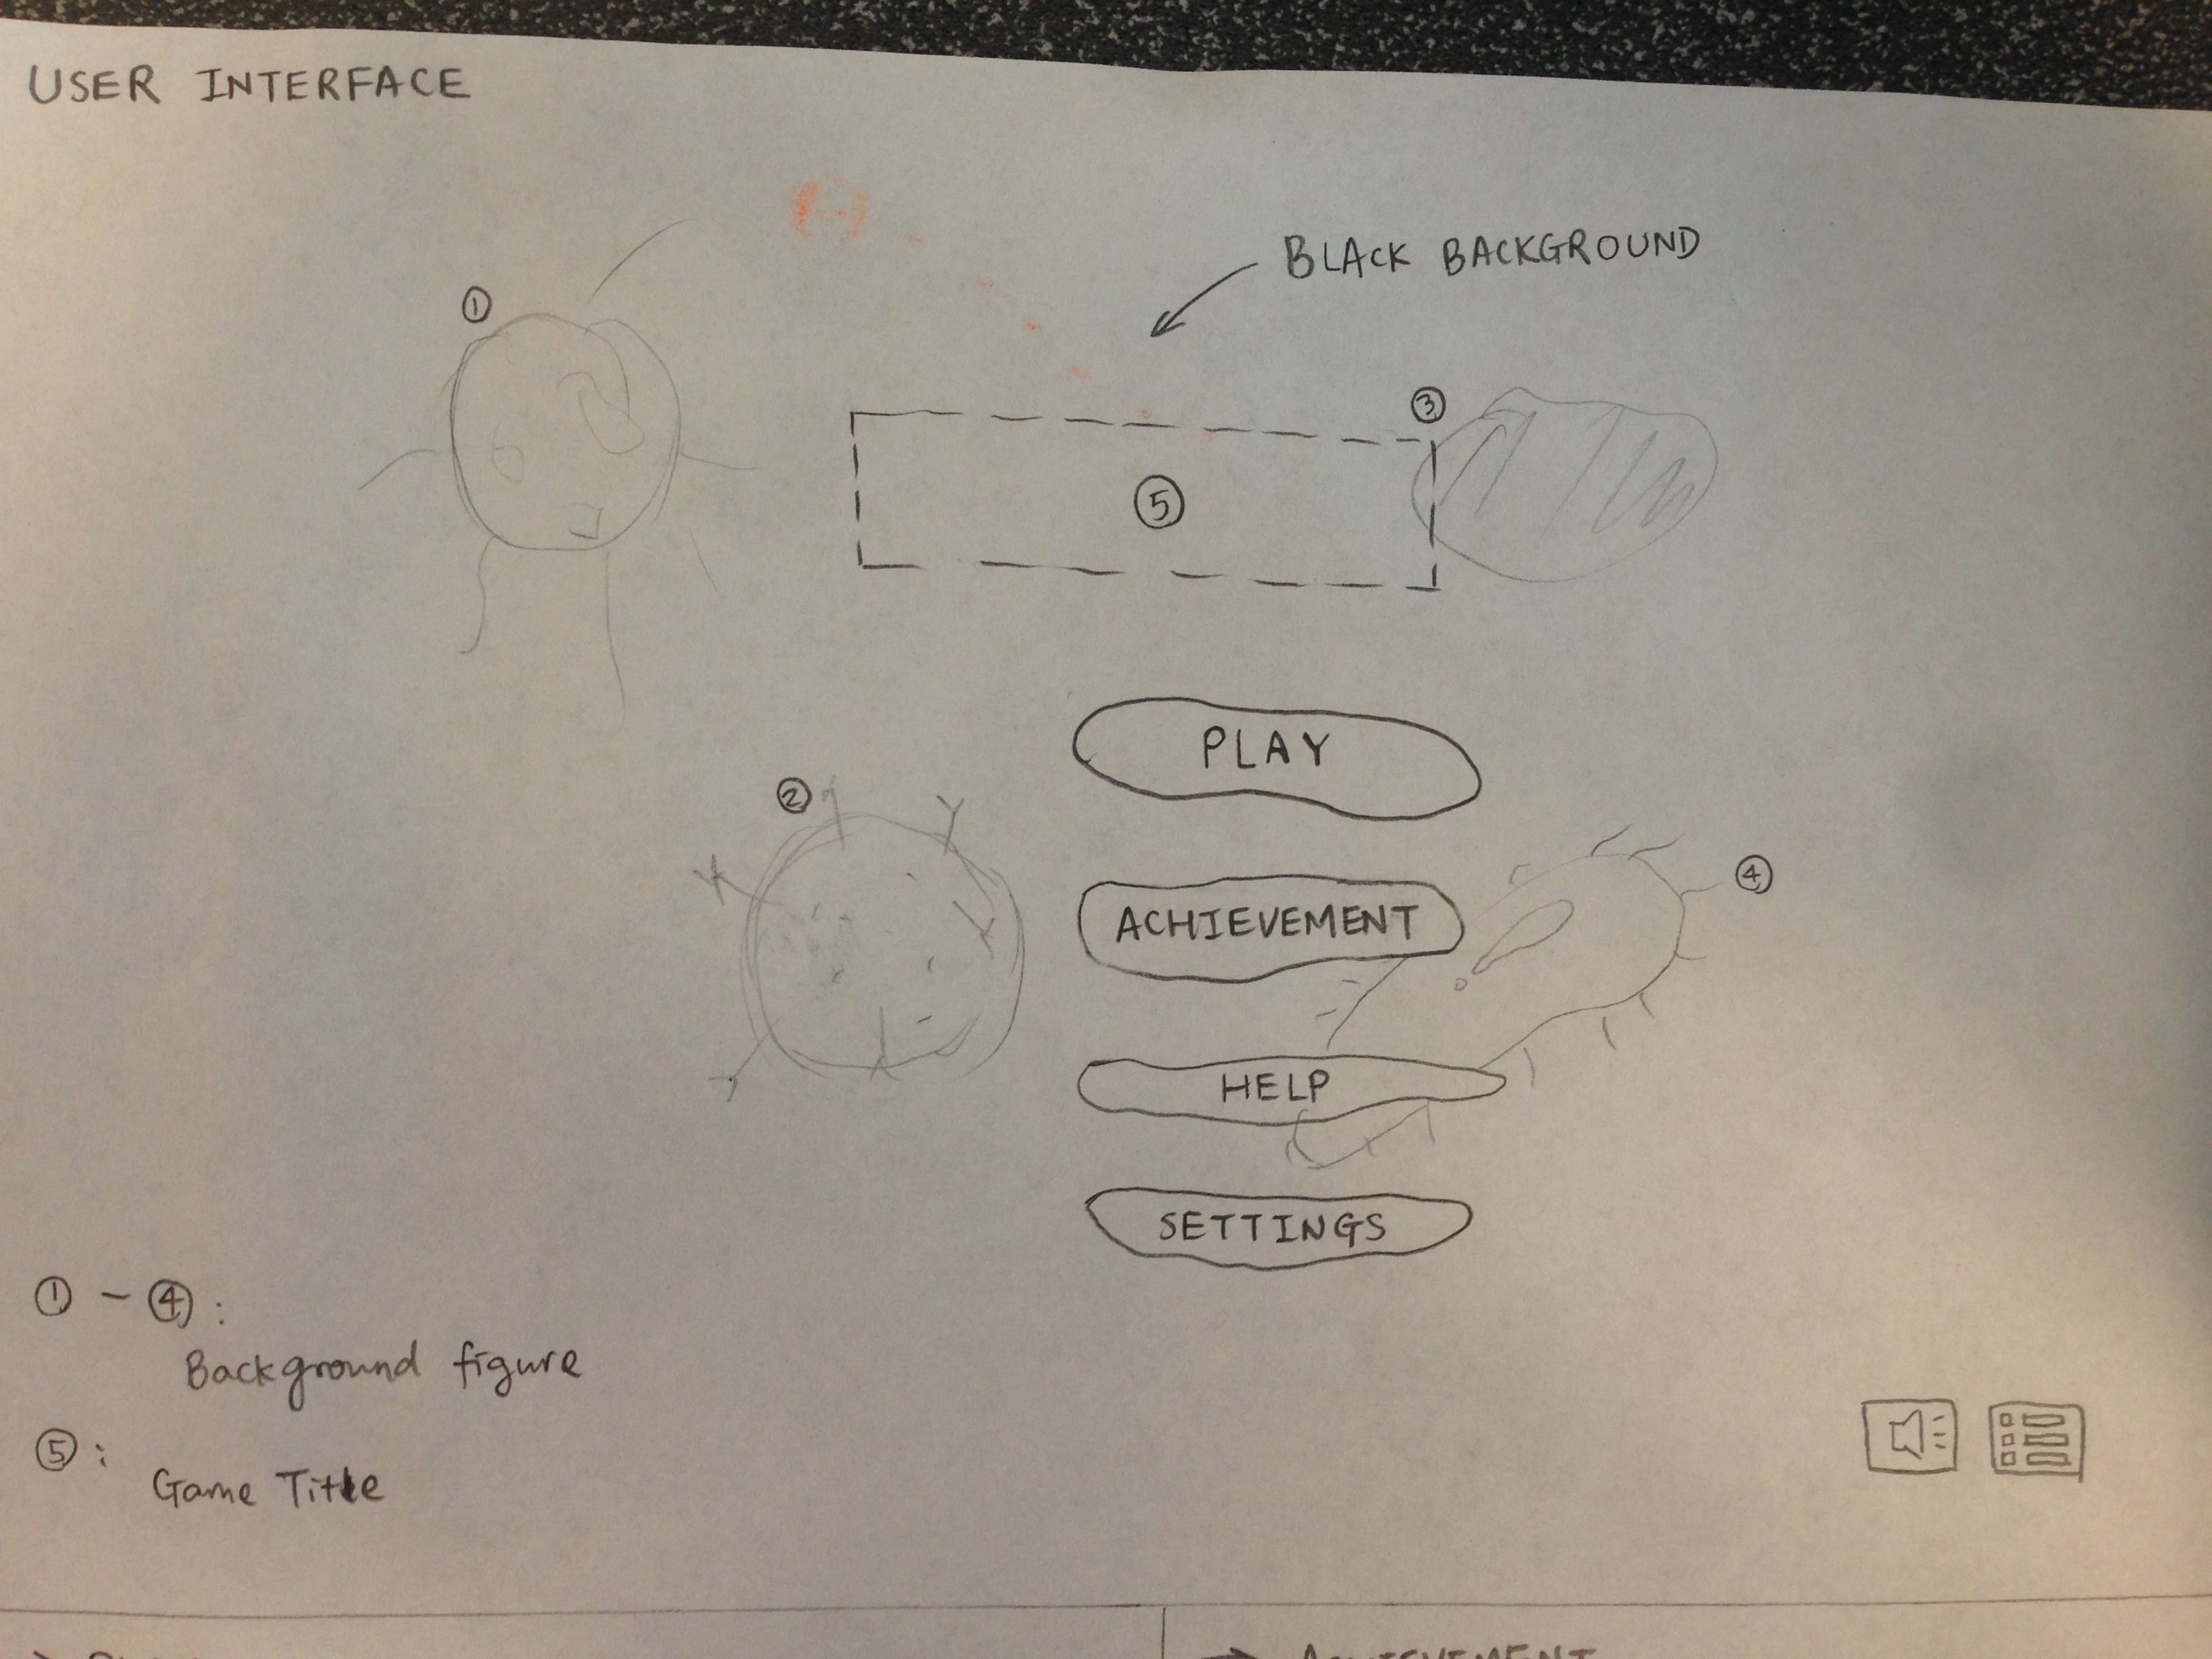 USER INTERFACE
BLACK BACKGROUND
①
③
⑤
②
PLAY
④
ACHIEVEMENT
HELP
SETTINGS
① - ④:
Background figure
⑤: Game Title
ACHIEVEMENT